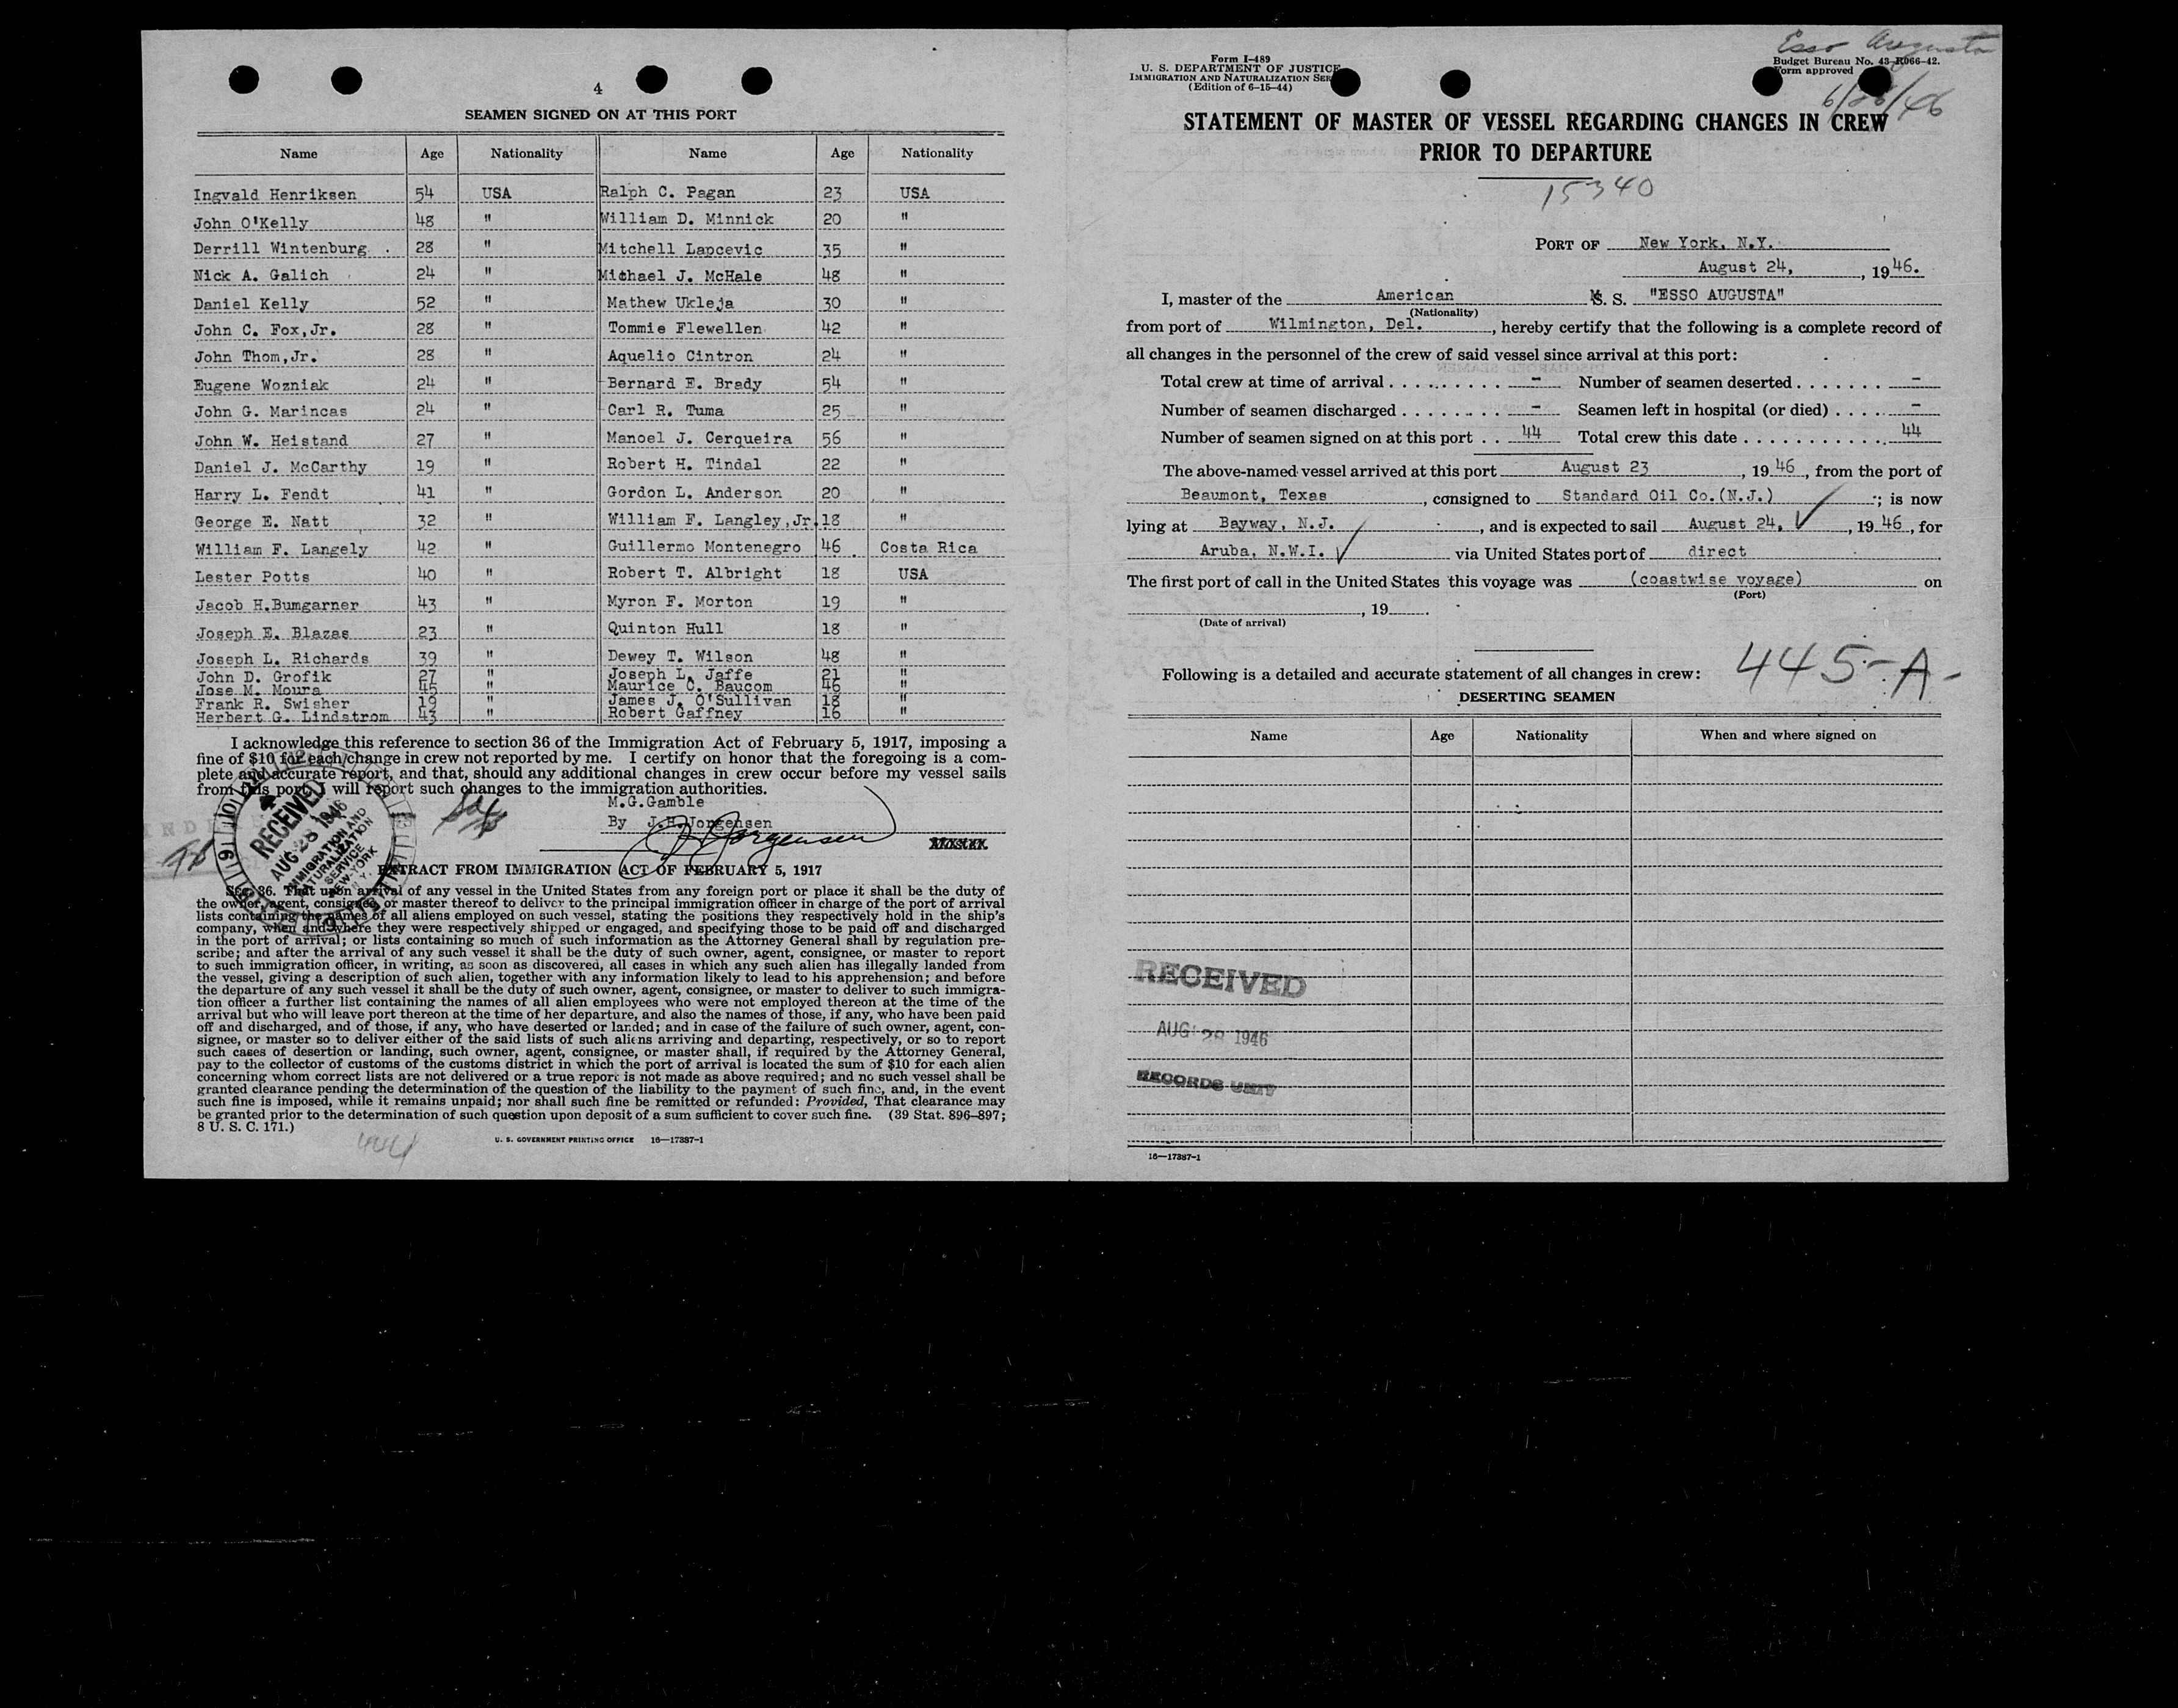 4
SEAMEN SIGNED ON AT THIS PORT
Name Age Nationality Name Age Nationality
Ingvald Henriksen 54 USA Ralph C. Pagan 23 USA
John O'Kelly 48 " William D. Minnick 20 "
Derrill Wintenburg 28 " Mitchell Lapcevic 35 "
Nick A. Galich 24 " Michael J. McHale 48 "
Daniel Kelly 52 " Mathew Ukleja 30 "
John C. Fox,Jr. 28 " Tommie Flewellen 42 "
John Thom,Jr. 28 " Aquelio Cintron 24 "
Eugene Wozniak 24 " Bernard E. Brady 54 "
John G. Marincas 24 " Carl R. Tuma 25 "
John W. Heistand 27 " Manoel J. Cerqueira 56 "
Daniel J. McCarthy 19 " Robert H. Tindal 22 "
Harry L. Fendt 41 " Gordon L. Anderson 20 "
George E. Natt 32 " William F. Langley,Jr. 18 "
William F. Langely 42 " Guillermo Montenegro 46 Costa Rica
Lester Potts 40 " Robert T. Albright 18 USA
Jacob H.Bumgarner 43 " Myron F. Morton 19 "
Joseph E. Blazas 23 " Quinton Hull 18 "
Joseph L. Richards 39 " Dewey T. Wilson 48 "
John D. Grofik 27 " Joseph L. Jaffe 21 "
Jose M. Moura 45 " Maurice C. Baucom 46 "
Frank R. Swisher 19 " James J. O'Sullivan 18 "
Herbert G. Lindstrom 43 " Robert Gaffney 16 "
I acknowledge this reference to section 36 of the Immigration Act of February 5, 1917, imposing a
fine of $10 for each change in crew not reported by me. I certify on honor that the foregoing is a com-
plete and accurate report, and that, should any additional changes in crew occur before my vessel sails
from this port, I will report such changes to the immigration authorities.
M.G.Gamble
By J.H.Jorgensen
J Jorgensen
RECEIVED
AUG 28 1946
IMMIGRATION AND
NATURALIZATION
SERVICE
NEW YORK
N.Y.
EXTRACT FROM IMMIGRATION ACT OF FEBRUARY 5, 1917
SEC. 36. That upon arrival of any vessel in the United States from any foreign port or place it shall be the duty of
the owner, agent, consignee, or master thereof to deliver to the principal immigration officer in charge of the port of arrival
lists containing the names of all aliens employed on such vessel, stating the positions they respectively hold in the ship's
company, when and where they were respectively shipped or engaged, and specifying those to be paid off and discharged
in the port of arrival; or lists containing so much of such information as the Attorney General shall by regulation pre-
scribe; and after the arrival of any such vessel it shall be the duty of such owner, agent, consignee, or master to report
to such immigration officer, in writing, as soon as discovered, all cases in which any such alien has illegally landed from
the vessel, giving a description of such alien, together with any information likely to lead to his apprehension; and before
the departure of any such vessel it shall be the duty of such owner, agent, consignee, or master to deliver to such immigra-
tion officer a further list containing the names of all alien employees who were not employed thereon at the time of the
arrival but who will leave port thereon at the time of her departure, and also the names of those, if any, who have been paid
off and discharged, and of those, if any, who have deserted or landed; and in case of the failure of such owner, agent, con-
signee, or master so to deliver either of the said lists of such aliens arriving and departing, respectively, or so to report
such cases of desertion or landing, such owner, agent, consignee, or master shall, if required by the Attorney General,
pay to the collector of customs of the customs district in which the port of arrival is located the sum of $10 for each alien
concerning whom correct lists are not delivered or a true report is not made as above required; and no such vessel shall be
granted clearance pending the determination of the question of the liability to the payment of such fine, and, in the event
such fine is imposed, while it remains unpaid; nor shall such fine be remitted or refunded: Provided, That clearance may
be granted prior to the determination of such question upon deposit of a sum sufficient to cover such fine. (39 Stat. 896–897;
8 U. S. C. 171.)
U. S. GOVERNMENT PRINTING OFFICE 16—17387-1
Form I-489
U. S. DEPARTMENT OF JUSTICE
IMMIGRATION AND NATURALIZATION
(Edition of 6-15-44)
Esso Augusta
Budget Bureau No. 43-R066-42.
Form approved
6/28/46
STATEMENT OF MASTER OF VESSEL REGARDING CHANGES IN CREW
PRIOR TO DEPARTURE
15340
PORT OF New York, N.Y.
August 24, , 1946.
I, master of the American M. S. "ESSO AUGUSTA"
(Nationality)
from port of Wilmington, Del. , hereby certify that the following is a complete record of
all changes in the personnel of the crew of said vessel since arrival at this port:
Total crew at time of arrival - Number of seamen deserted -
Number of seamen discharged - Seamen left in hospital (or died) -
Number of seamen signed on at this port 44 Total crew this date 44
The above-named vessel arrived at this port August 23 , 1946, from the port of
Beaumont, Texas , consigned to Standard Oil Co.(N.J.) ; is now
lying at Bayway, N.J. , and is expected to sail August 24, , 1946, for
Aruba, N.W.I. via United States port of direct
The first port of call in the United States this voyage was (coastwise voyage) on
(Port)
, 19 .
(Date of arrival)
Following is a detailed and accurate statement of all changes in crew:
445-A-
DESERTING SEAMEN
Name Age Nationality When and where signed on
RECEIVED
AUG 28 1946
RECORDS UNIT
16—17387-1